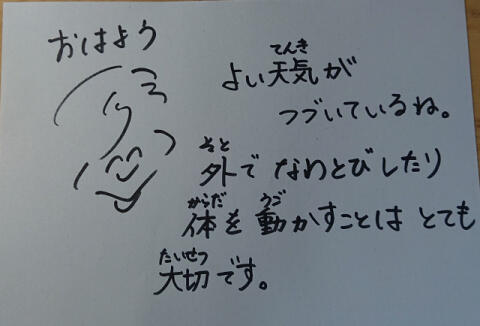 おはよう
よい天気が
てんき
つづいているね。
外でなわとびしたり
そと
体を動かすことはとても
からだ うご
大切です。
たいせつ